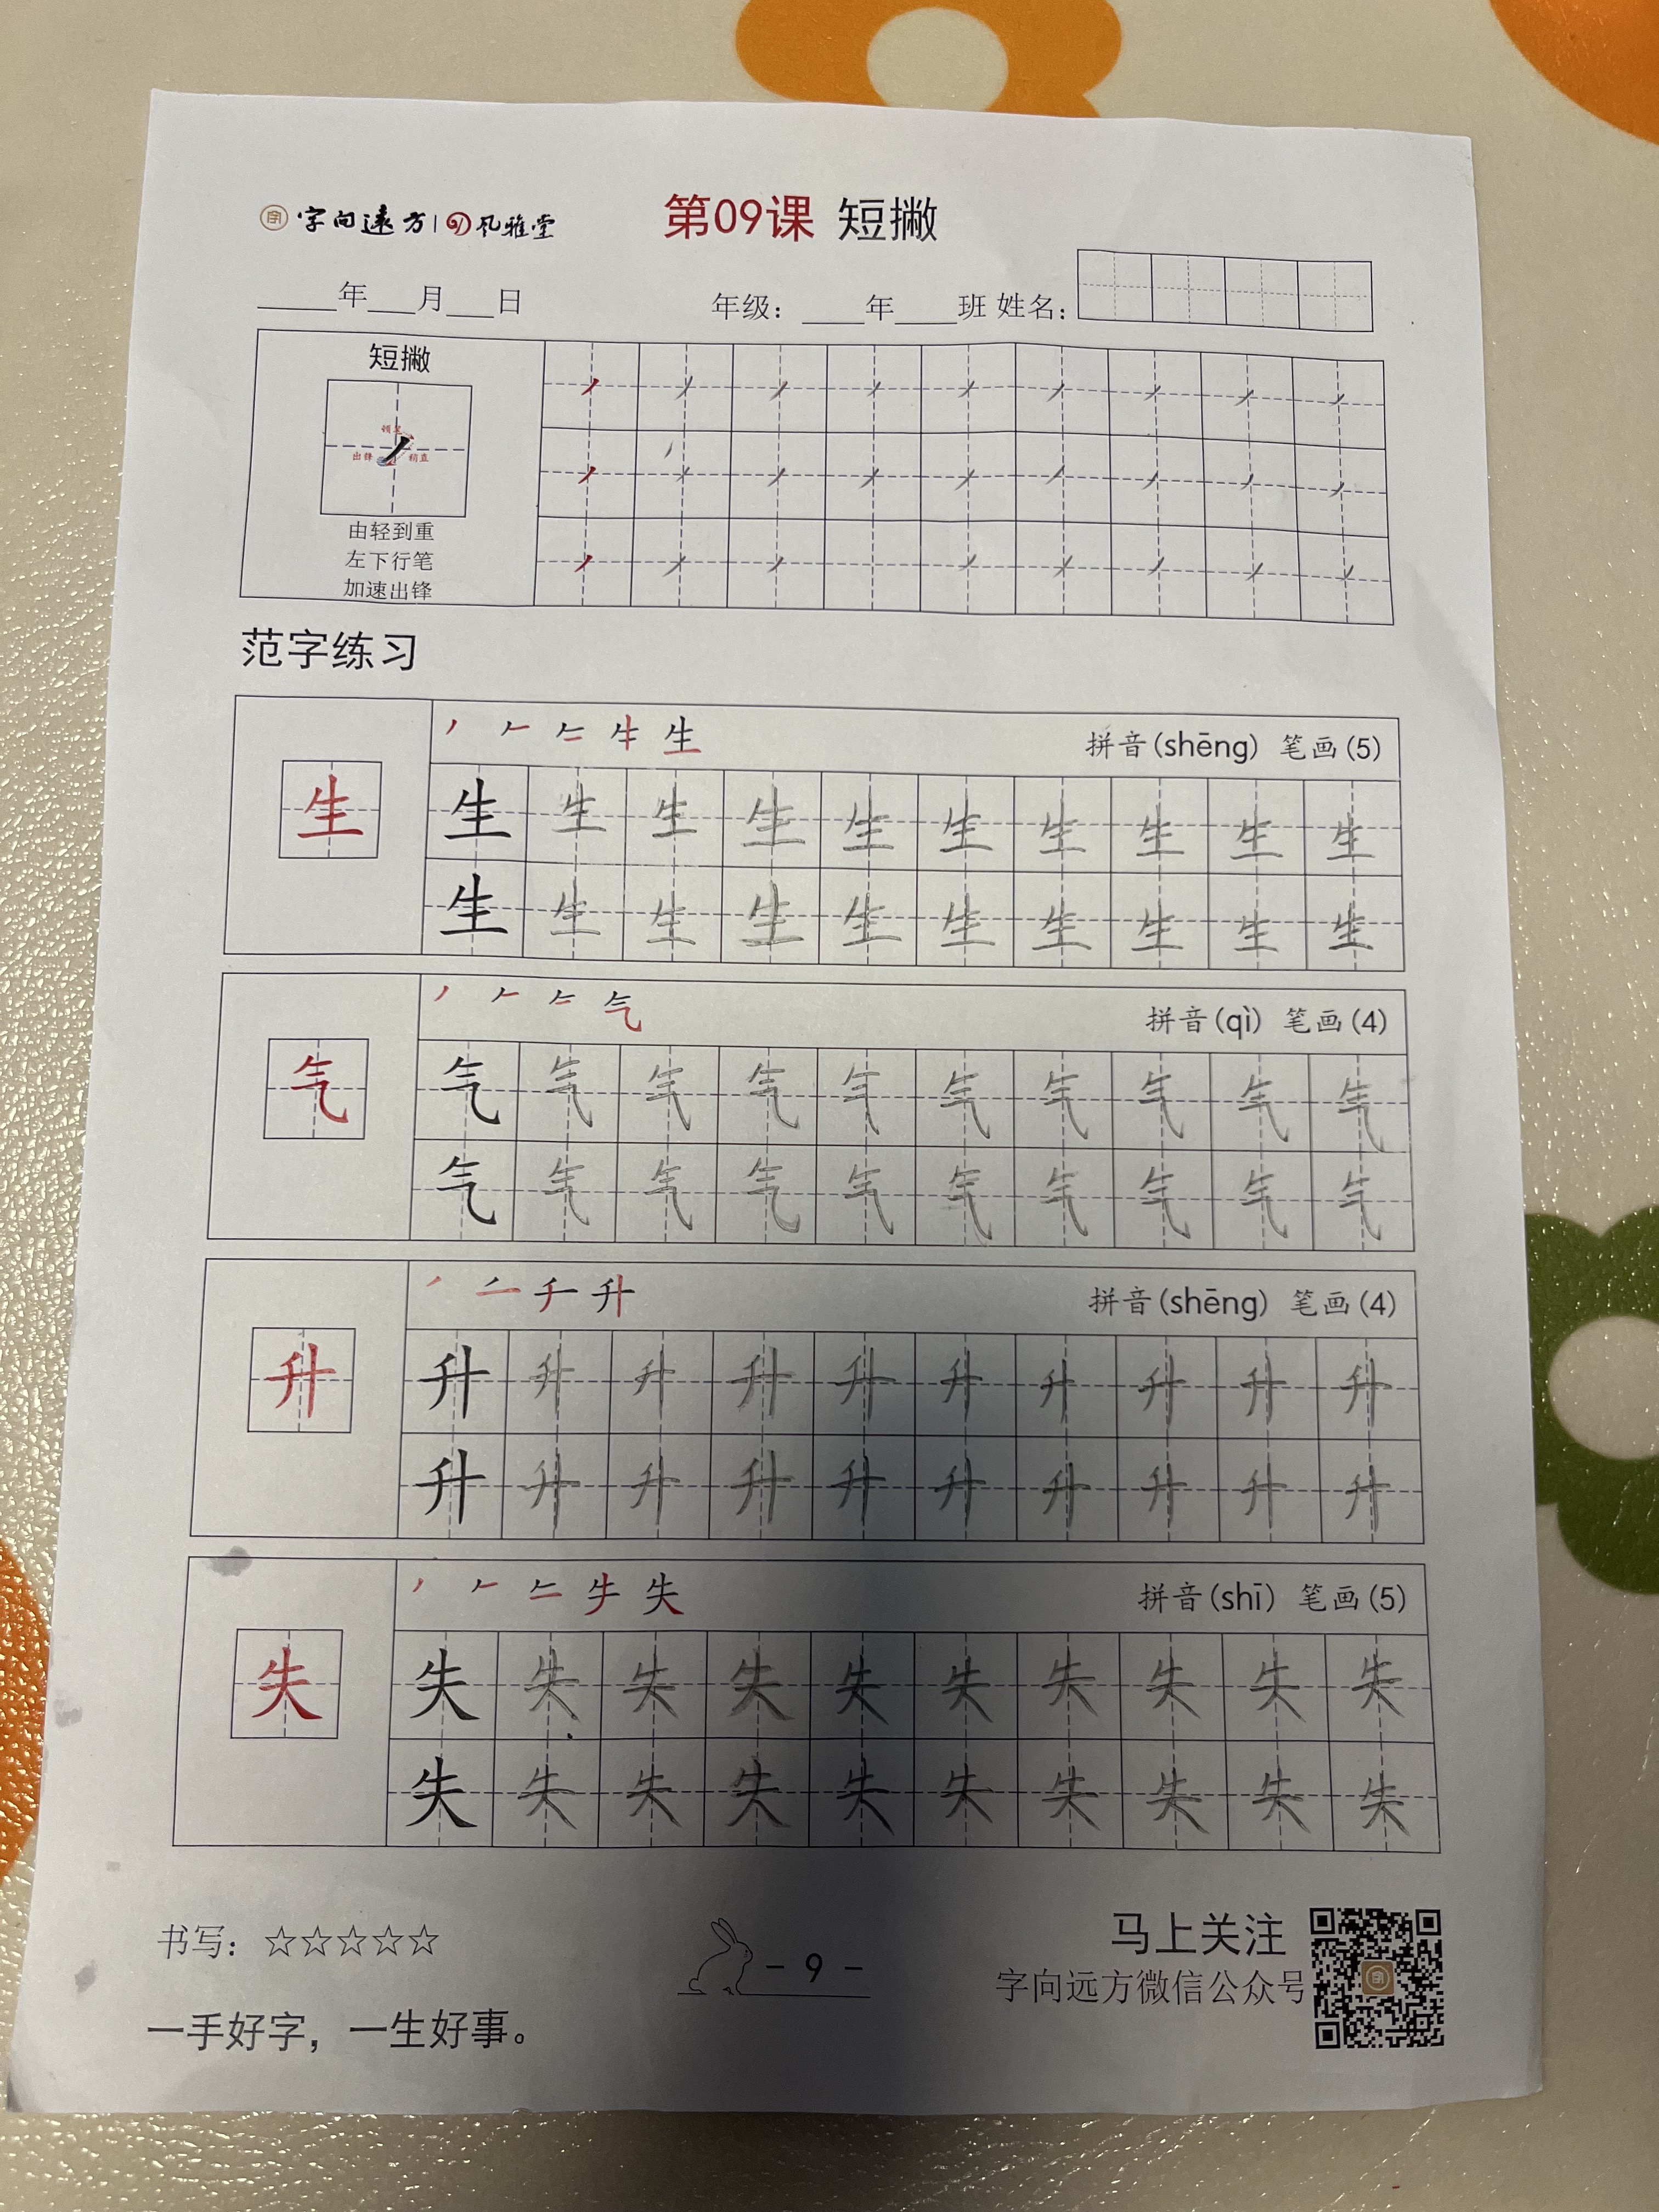 字向遠方 风雅堂
第09课 短撇
____年___月___日 年级：____年____班 姓名：
短撇
顿笔
出锋 稍直
由轻到重
左下行笔
加速出锋
范字练习
拼音(shēng) 笔画(5)
生 生 生 生 生 生 生 生 生 生 生
生 生 生 生 生 生 生 生 生 生
拼音(qì) 笔画(4)
气 气 气 气 气 气 气 气 气 气 气
气 气 气 气 气 气 气 气 气 气
拼音(shēng) 笔画(4)
升 升 升 升 升 升 升 升 升 升 升
升 升 升 升 升 升 升 升 升 升
拼音(shī) 笔画(5)
失 失 失 失 失 失 失 失 失 失 失
失 失 失 失 失 失 失 失 失 失
书写：☆☆☆☆☆
一手好字，一生好事。
- 9 -
马上关注
字向远方微信公众号